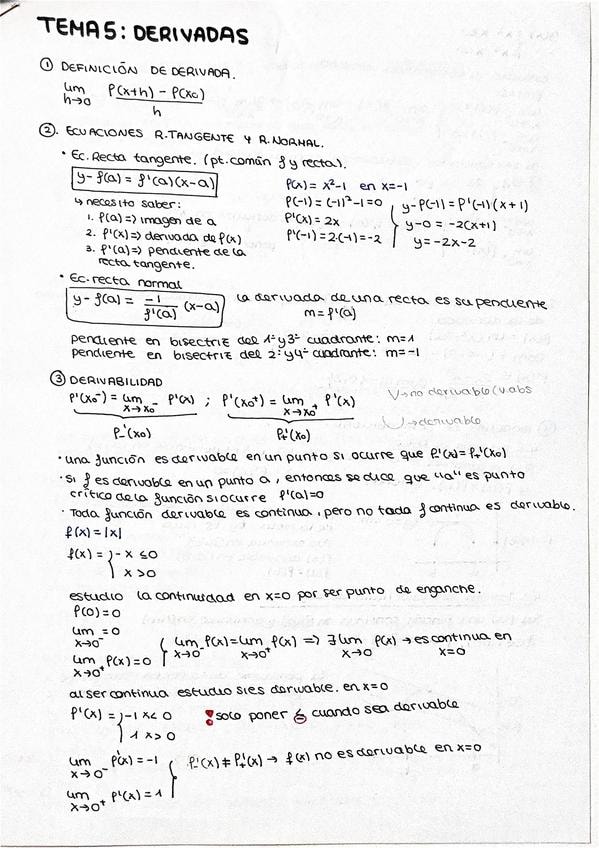 TEMA 5: DERIVADAS
① DEFINICIÓN DE DERIVADA.
lim h→0 f(x+h) - f(x0) / h
②. ECUACIONES R.TANGENTE Y R.NORMAL.
• Ec. Recta tangente. (pt.común f y recta).
y-f(a) = f'(a)(x-a)
↳ necesito saber:
1. f(a) => imagen de a
2. f'(x) => derivada de f(x)
3. f'(a) => pendiente de la
recta tangente.
f(x) = x²-1 en x=-1
f(-1) = (-1)²-1=0
f'(x) = 2x
f'(-1) = 2·(-1) = -2
y-f(-1) = f'(-1)(x+1)
y-0 = -2(x+1)
y = -2x-2
• Ec. recta normal
y-f(a) = -1/f'(a) (x-a)
la derivada de una recta es su pendiente
m = f'(a)
pendiente en bisectriz del 1º y 3º cuadrante: m=1
pendiente en bisectriz del 2º y 4º cuadrante: m=-1
③ DERIVABILIDAD
f'(x0⁻) = lim x→x0⁻ f'(x) ; f'(x0⁺) = lim x→x0⁺ f'(x)
f-'(x0) f+'(x0)
V→no derivable (v.abs
U→derivable
• una función es derivable en un punto si ocurre que f-'(x) = f+'(x0)
• si f es derivable en un punto a, entonces se dice que "a" es punto
crítico de la función si ocurre f'(a)=0
• Toda función derivable es continua, pero no toda f continua es derivable.
f(x) = |x|
f(x) = { -x ≤0
x >0
estudio la continuidad en x=0 por ser punto de enganche.
f(0) = 0
lim x→0⁻ = 0
lim x→0⁺ f(x) = 0
lim x→0⁻ f(x) = lim x→0⁺ f(x) => ∃ lim x→0 f(x) → es continua en
x=0
al ser continua estudio si es derivable. en x=0
f'(x) = { -1 x< 0
1 x> 0
! solo poner ≤ cuando sea derivable
lim x→0⁻ f'(x) = -1
lim x→0⁺ f'(x) = 1
f-'(x) ≠ f+'(x) → f(x) no es derivable en x=0